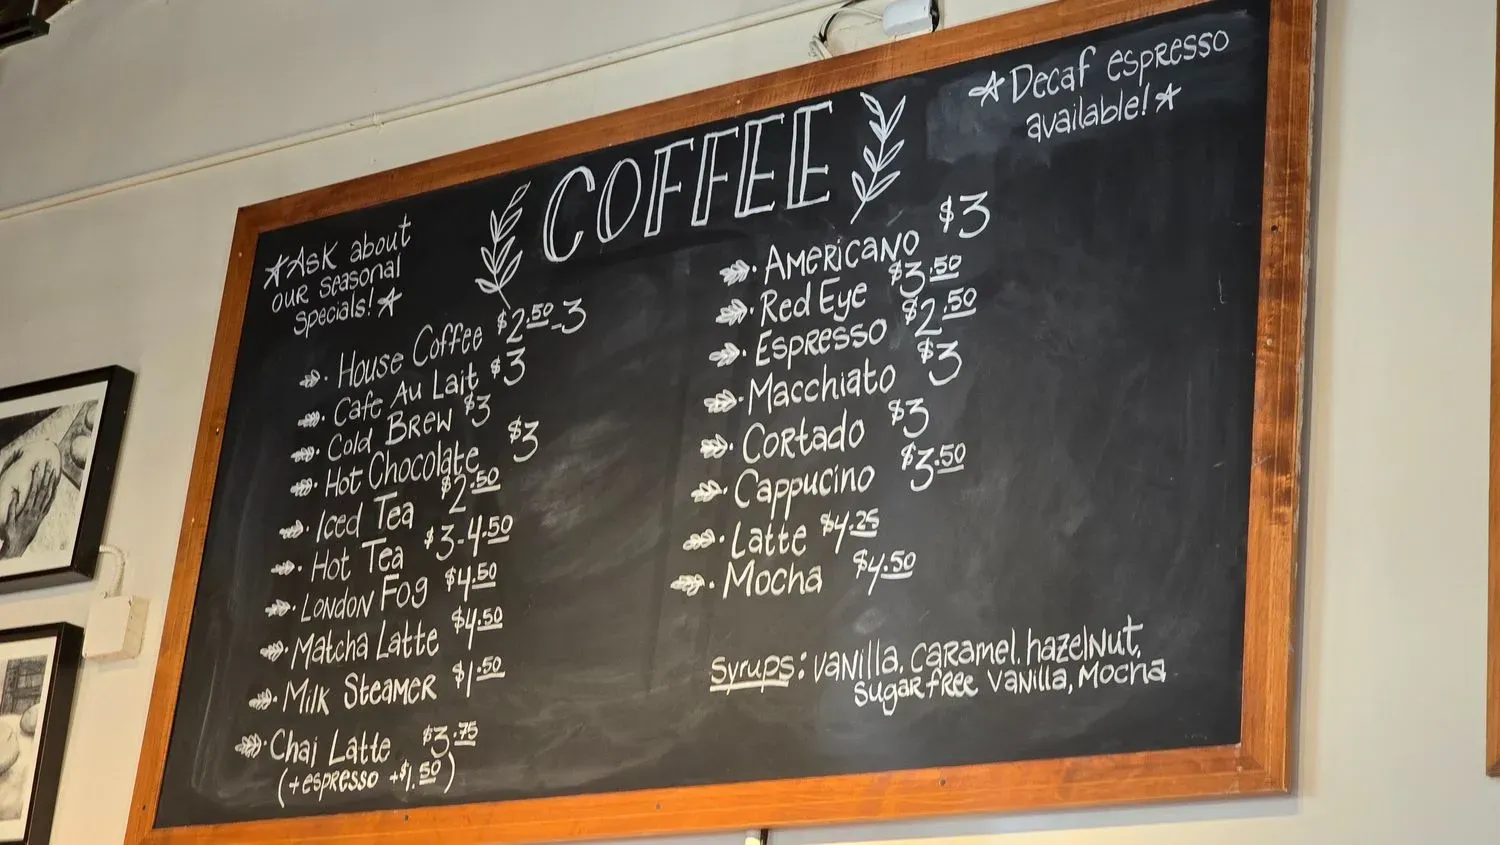 COFFEE
Decaf espresso
available!
Ask about
our seasonal
specials!
House Coffee $2.50-3
Cafe Au Lait $3
Cold Brew $3
Hot Chocolate $3
Iced Tea $2.50
Hot Tea $3-4.50
London Fog $4.50
Matcha Latte $4.50
Milk Steamer $1.50
Chai Latte $3.75
(+espresso +$1.50)
Americano $3
Red Eye $3.50
Espresso $2.50
Macchiato $3
Cortado $3
Cappucino $3.50
Latte $4.25
Mocha $4.50
Syrups: vanilla, caramel, hazelnut,
sugar free vanilla, mocha